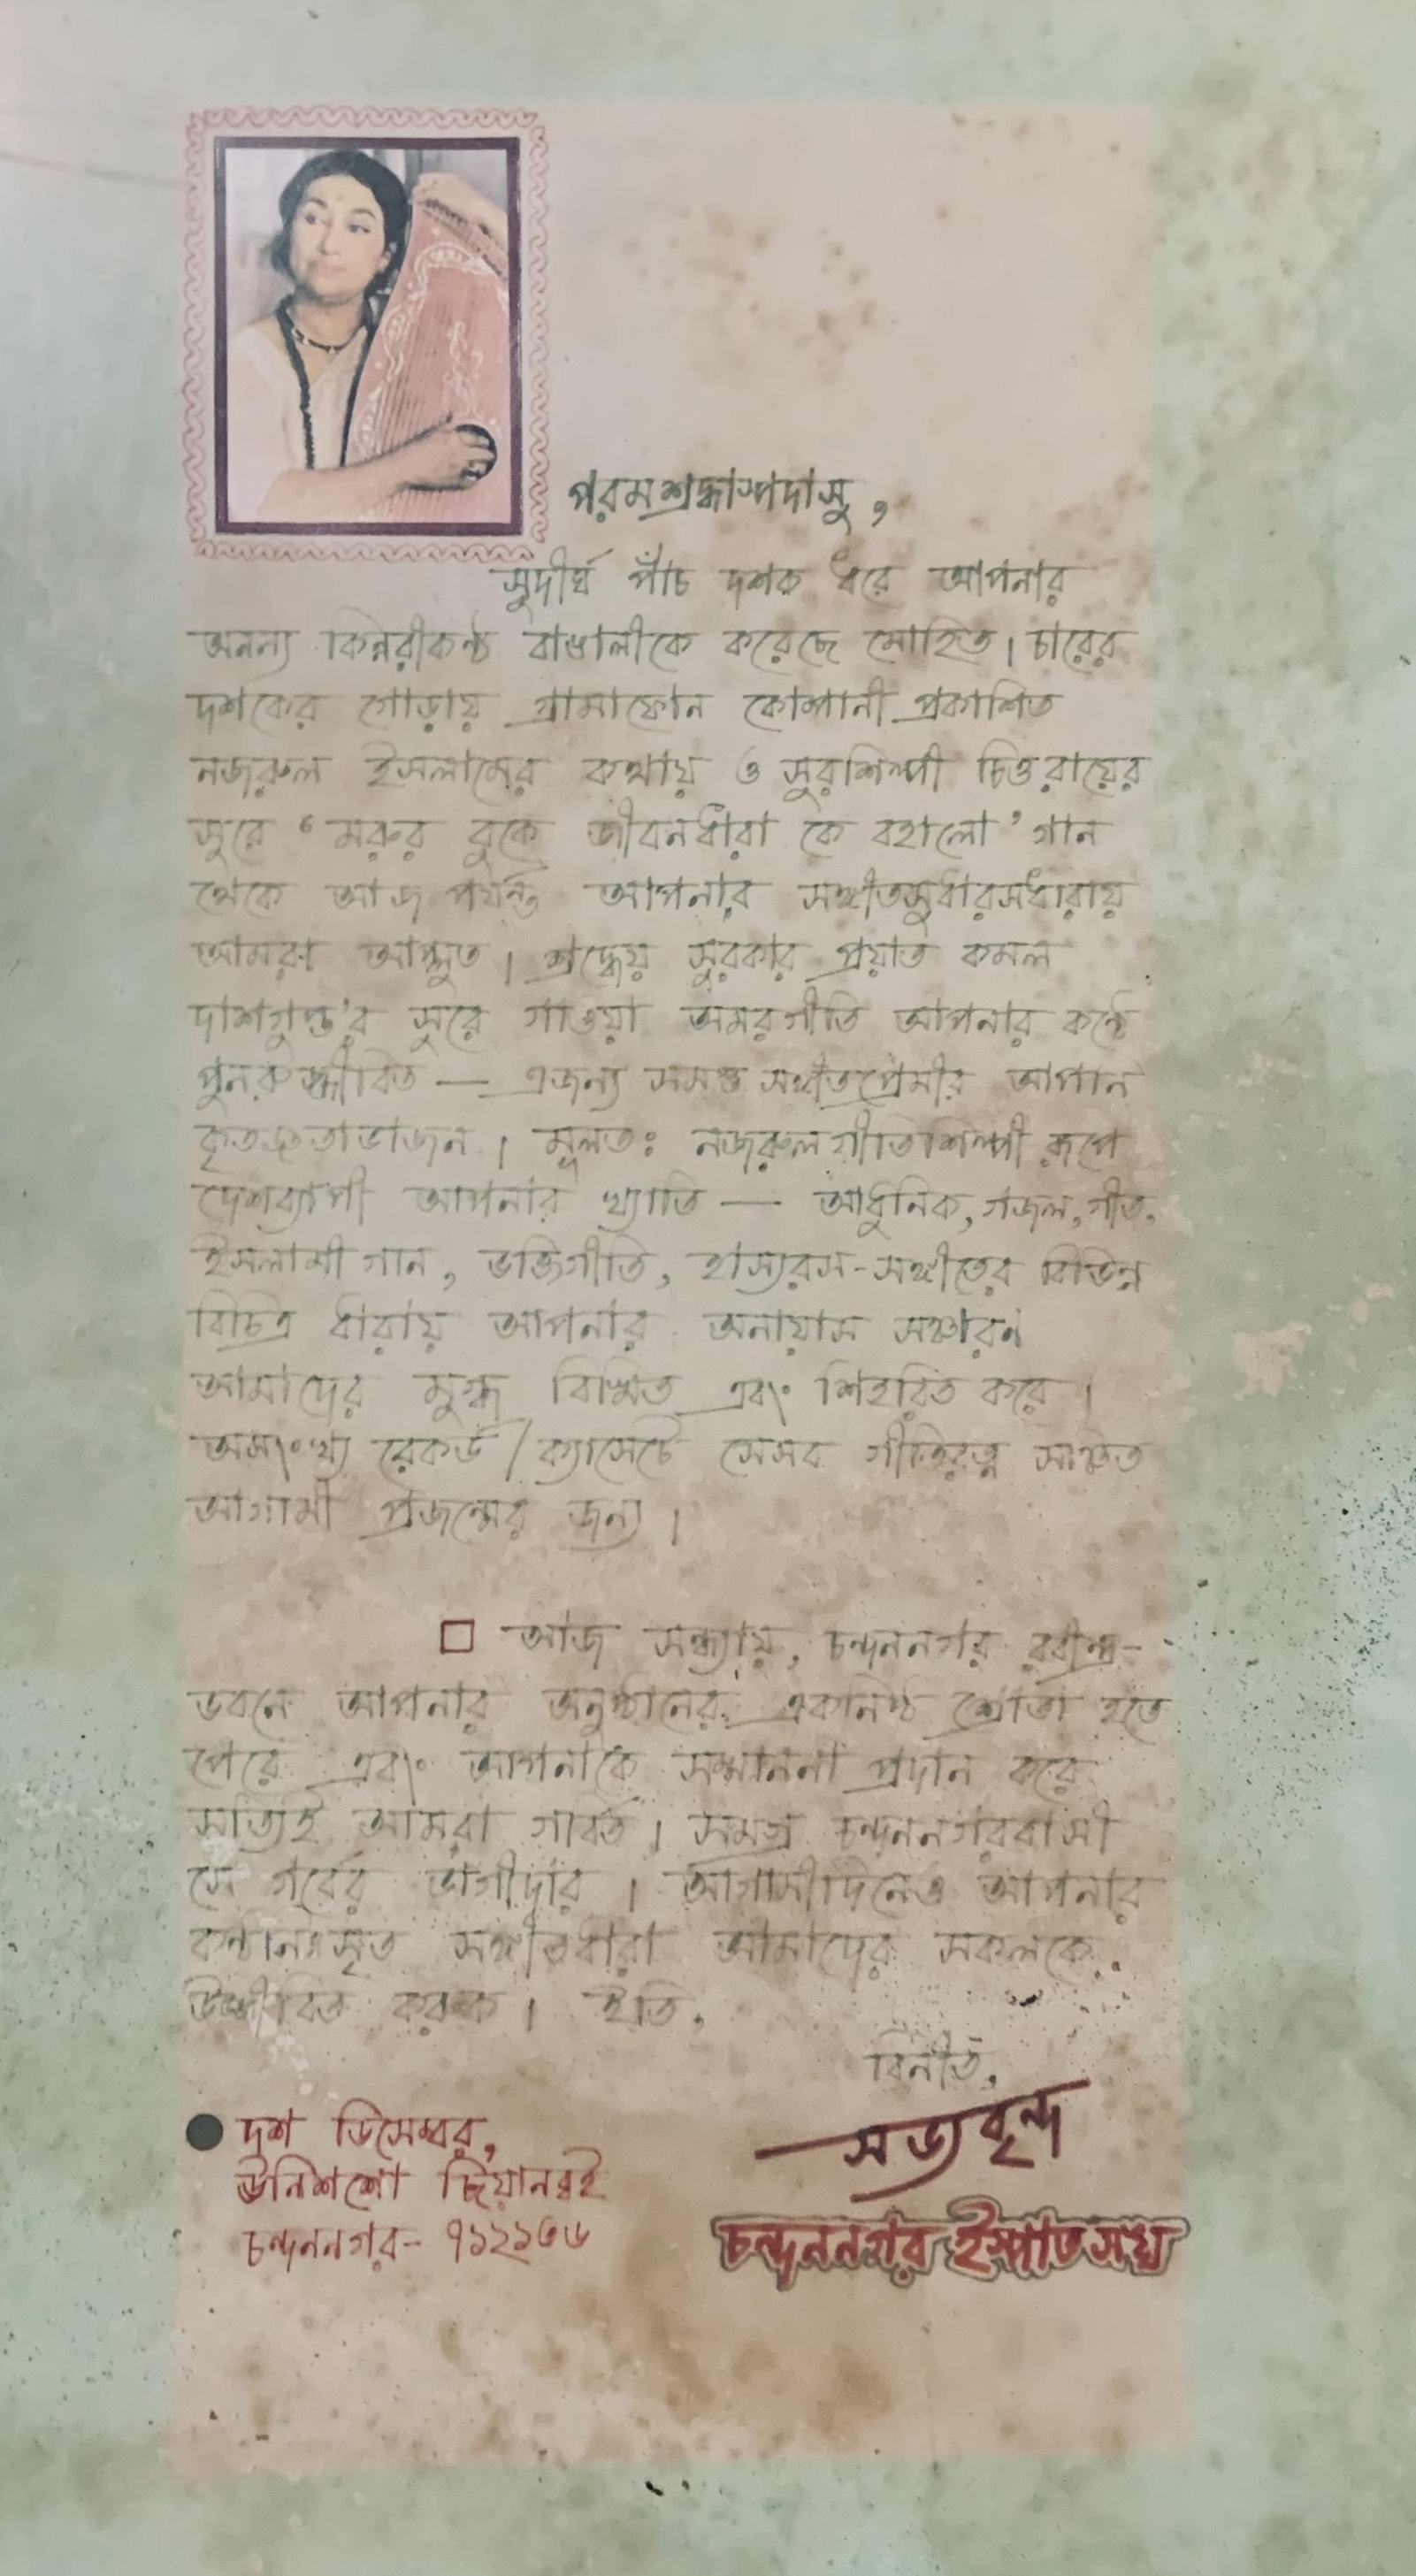 পরমশ্রদ্ধাস্পদাসু,
সুদীর্ঘ পাঁচ দশক ধরে আপনার
অনন্য কিন্নরীকণ্ঠ বাঙালীকে করেছে মোহিত। চারের
দশকের গোড়ায় গ্রামাফোন কোম্পানী প্রকাশিত
নজরুল ইসলামের কথায় ও সুরশিল্পী চিত্তরায়ের
সুরে ‘মরুর বুকে জীবনধারা কে বহালো’ গান
থেকে আজ পর্যন্ত আপনার সঙ্গীতসুধারসধারায়
আমরা আপ্লুত। শ্রদ্ধেয় সুরকার প্রয়াত কমল
দাশগুপ্ত'র সুরে গাওয়া অমরগীতি আপনার কণ্ঠে
পুনরুজ্জীবিত — এজন্য সমস্ত সঙ্গীতপ্রেমীর আপনি
কৃতজ্ঞতাভাজন। মূলতঃ নজরুলগীতিশিল্পী রূপে
দেশব্যাপী আপনার খ্যাতি — আধুনিক, গজল, গীত,
ইসলামী গান, ভক্তিগীতি, হাস্যরস-সঙ্গীতের বিভিন্ন
বিচিত্র ধারায় আপনার অনায়াস সঞ্চারন
আমাদের মুগ্ধ বিস্মিত এবং শিহরিত করে।
অসংখ্য রেকর্ড/ক্যাসেটে সেসব গীতিরত্ন সঞ্চিত
আগামী প্রজন্মের জন্য।
আজ সন্ধ্যায়, চন্দননগর রবীন্দ্র-
ভবনে আপনার অনুষ্ঠানের একনিষ্ঠ শ্রোতা হতে
পেরে এবং আপনাকে সম্মাননা প্রদান করে
সত্যিই আমরা গর্বিত। সমগ্র চন্দননগরবাসী
সে গর্বের ভাগীদার। আগামীদিনেও আপনার
কণ্ঠনিঃসৃত সঙ্গীতধারা আমাদের সকলকে
উজ্জীবিত করুক। ইতি,
বিনীত,
সভ্যবৃন্দ
চন্দননগর ইস্পাত সঙ্ঘ
দশ ডিসেম্বর,
ঊনিশশো ছিয়ানব্বই
চন্দননগর- ৭১২১৩৬